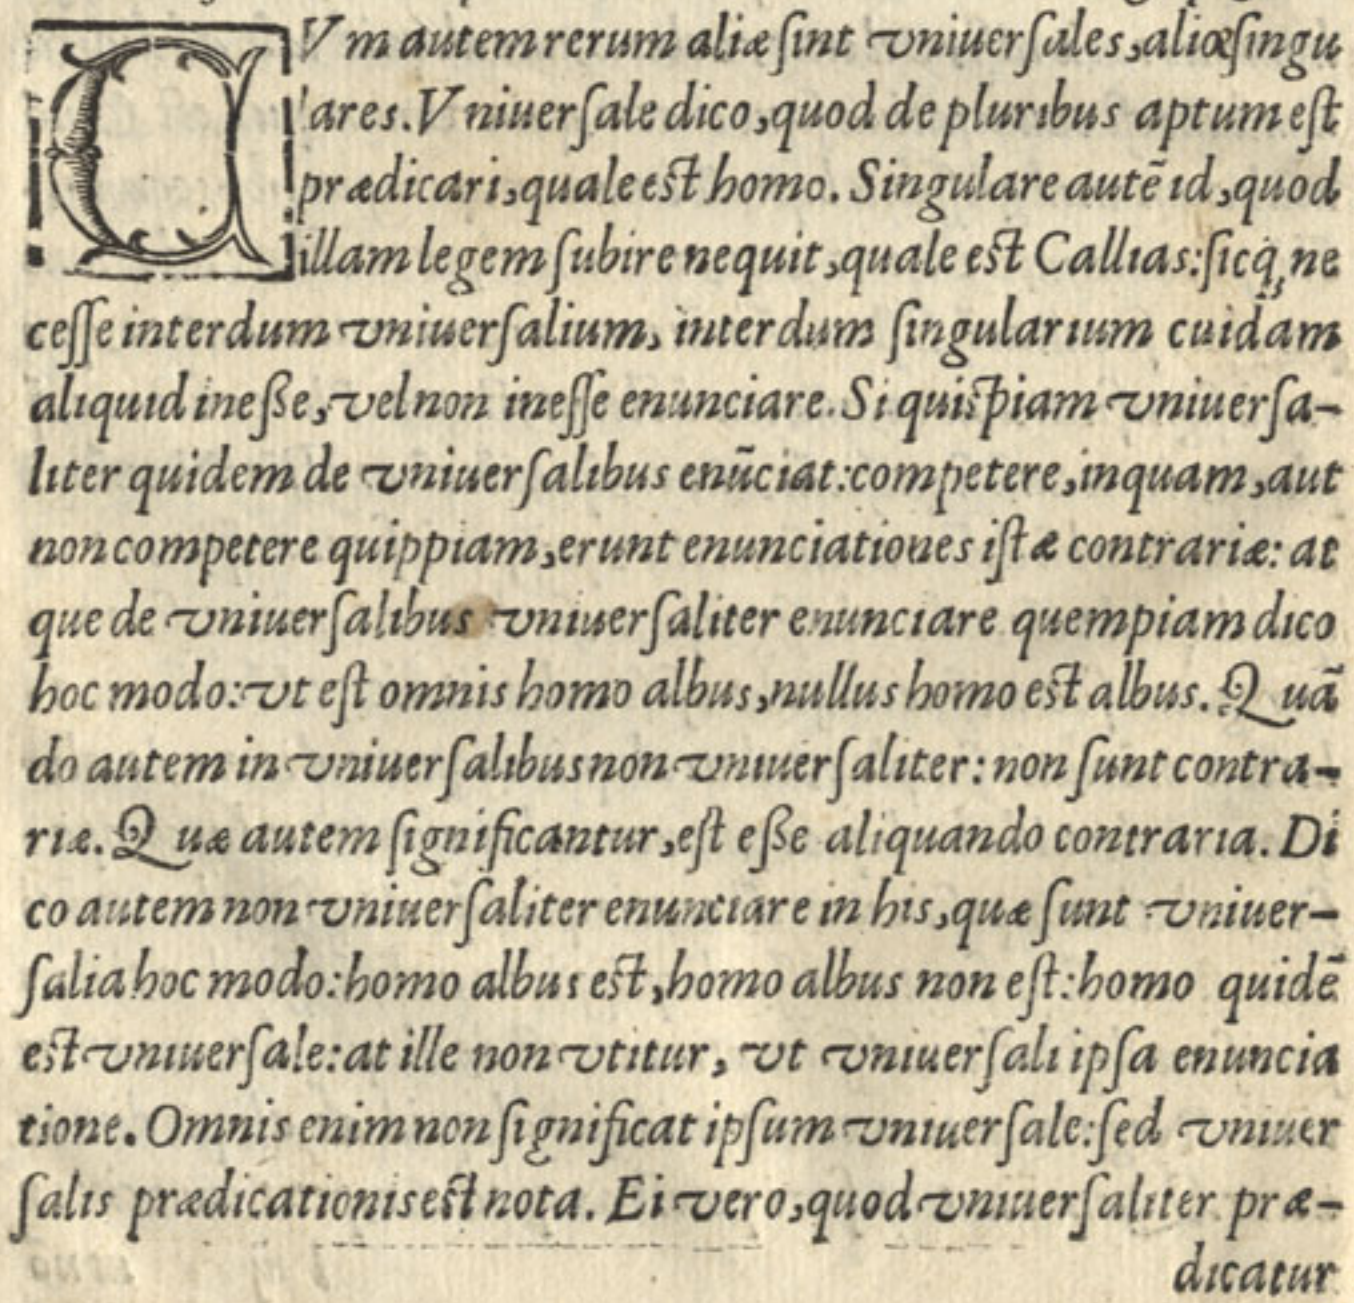 CVm autem rerum aliæ ſint vniuerſales, aliæ ſingu
lares. Vniuerſale dico, quod de pluribus aptum eſt
prædicari, quale eſt homo. Singulare autē id, quod
illam legem ſubire nequit, quale eſt Callias: ſicq̃ꝫ ne
ceſſe interdum vniuerſalium, interdum ſingularium cuidam
aliquid ineſſe, vel non ineſſe enunciare. Si quiſpiam vniuerſa-
liter quidem de vniuerſalibus enūciat: competere, inquam, aut
non competere quippiam, erunt enunciationes iſtæ contrariæ: at
que de vniuerſalibus vniuerſaliter enunciare quempiam dico
hoc modo: vt eſt omnis homo albus, nullus homo eſt albus. Quā
do autem in vniuerſalibus non vniuerſaliter: non ſunt contra-
riæ. Quæ autem ſignificantur, eſt eſſe aliquando contraria. Di
co autem non vniuerſaliter enunciare in his, quæ ſunt vniuer-
ſalia hoc modo: homo albus eſt, homo albus non eſt: homo quidē
eſt vniuerſale: at ille non vtitur, vt vniuerſali ipſa enuncia
tione. Omnis enim non ſignificat ipſum vniuerſale: ſed vniuer
ſalis prædicationis eſt nota. Ei vero, quod vniuerſaliter præ-
dicatur